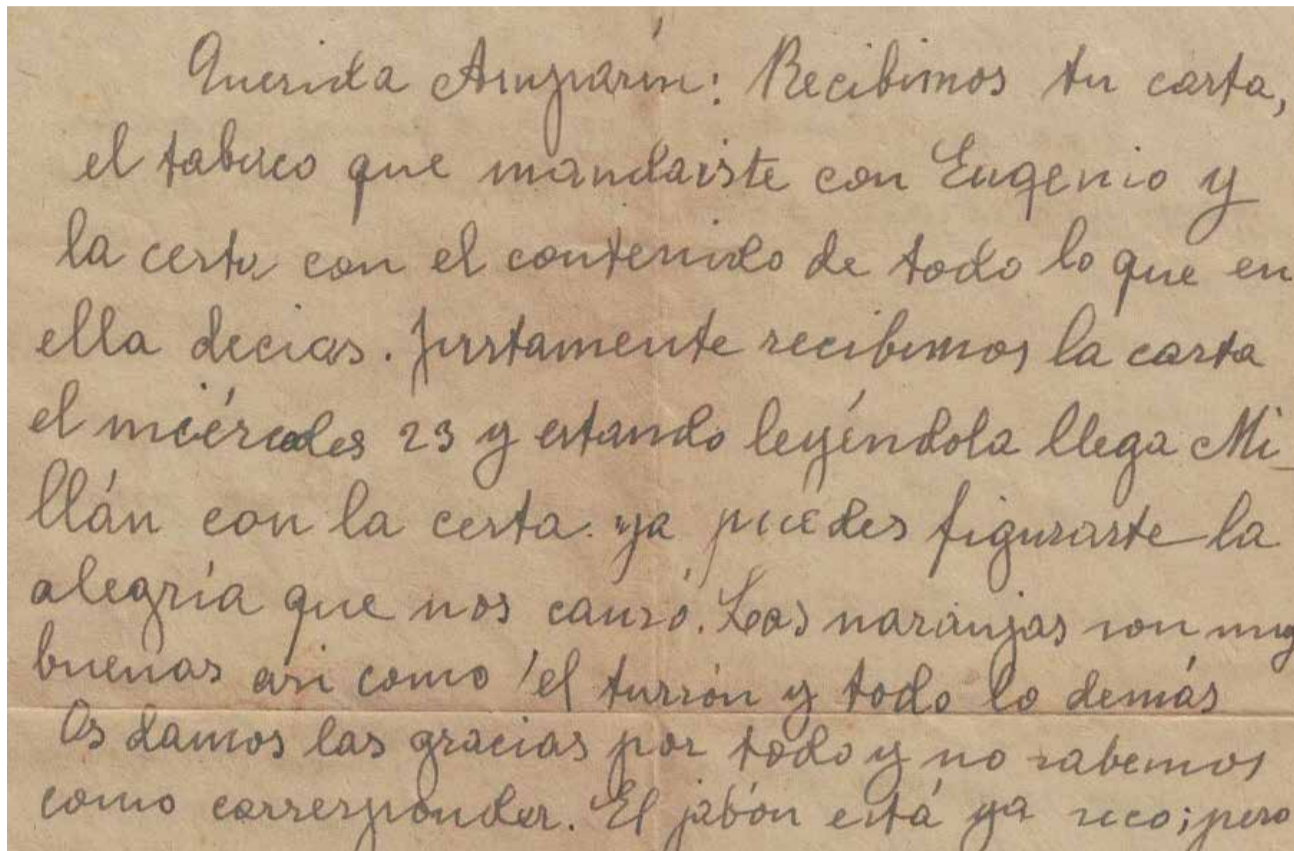 Querida Amparín: Recibimos tu carta,
el tabaco que mandaiste con Eugenio y
la cesta con el contenido de todo lo que en
ella decias. Justamente recibimos la carta
el miércoles 23 y estando leyéndola llega Mi-
llán con la cesta. ya puedes figurarte la
alegría que nos causó. Las naranjas son muy
buenas asi como el turrón y todo lo demás
Os damos las gracias por todo y no sabemos
como corresponder. El jabón está ya seco; pero